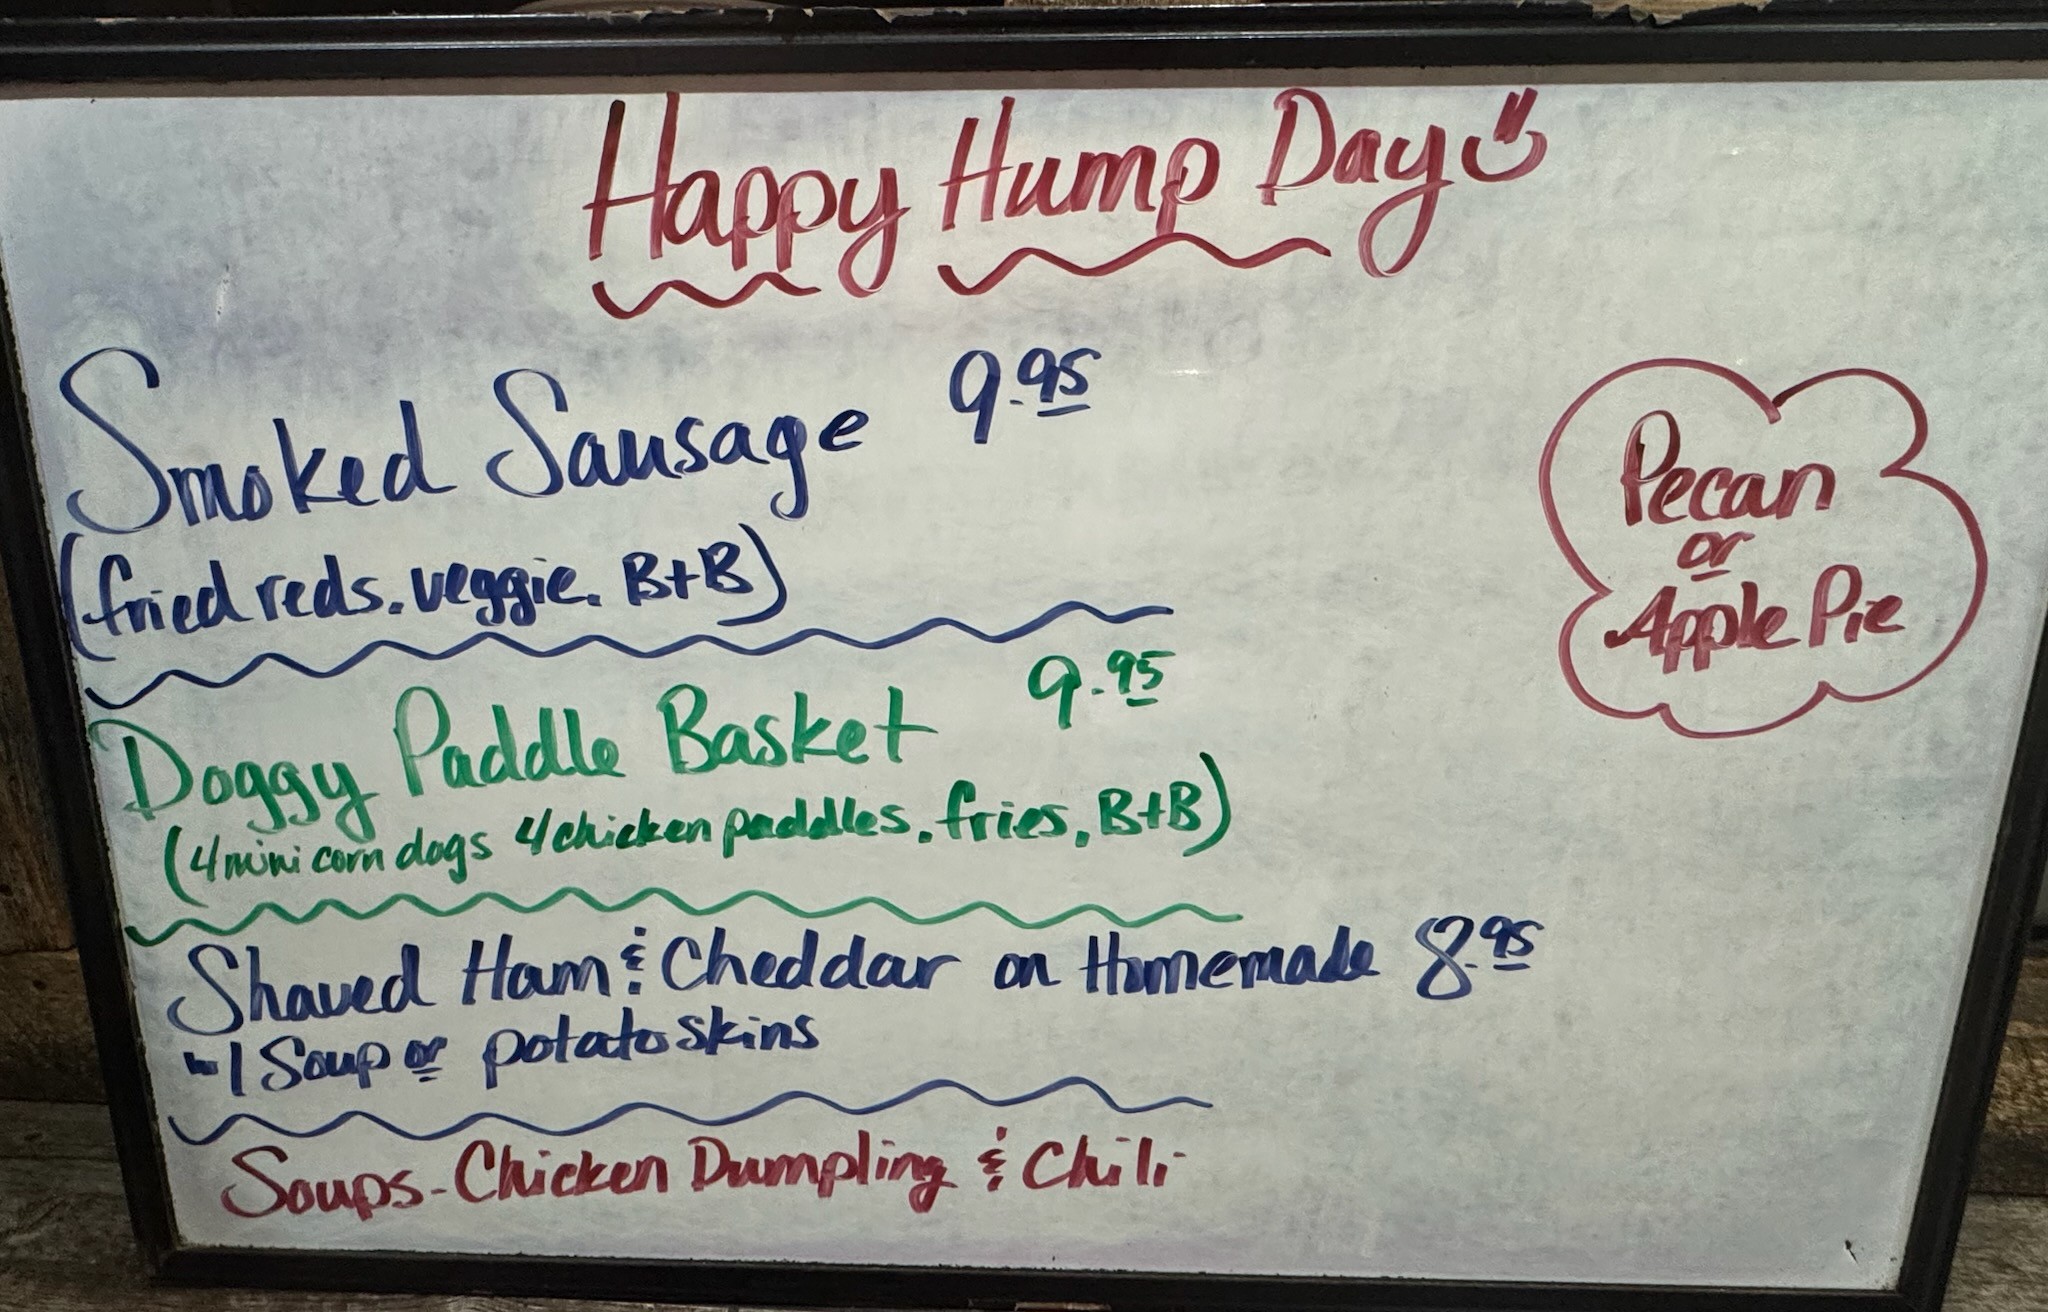 Happy Hump Day
Smoked Sausage 9.95
(fried reds. veggie. B+B)
Doggy Paddle Basket 9.95
(4 mini corn dogs 4 chicken paddles. fries. B+B)
Shaved Ham & Cheddar on Homemade 8.95
w/ Soup or potato skins
Soups - Chicken Dumpling & Chili
Pecan
or
Apple Pie